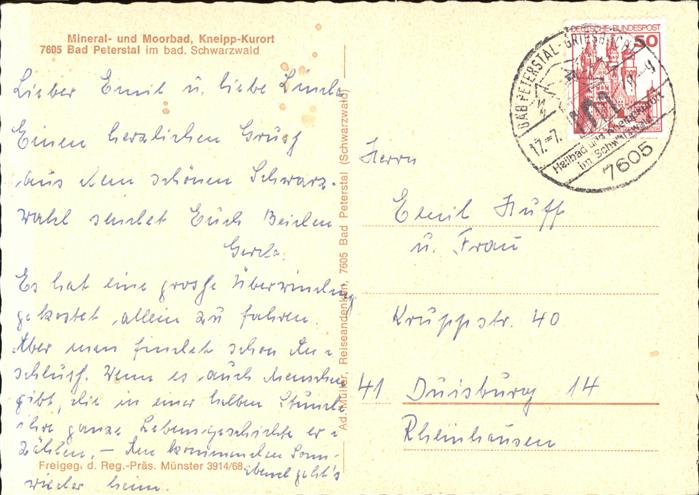 Mineral- und Moorbad, Kneipp-Kurort
7605 Bad Peterstal im bad. Schwarzwald
Lieber Emil u. liebe Linde
Einen herzlichen Gruß
aus dem schönen Schwarz-
wald sendet Euch Beiden
Gerda.
Es hat eine große Überwindung
gekostet, allein zu fahren.
Aber man findet schon An-
schluß. Wenn es auch Menschen
gibt, die in einer halben Stunde
ihre ganze Lebensgeschichte er-
zählen. – Am kommenden Sonn-
abend geht's
wieder heim.
Freigeg. d. Reg.-Präs. Münster 3914/68
Ad. Müller, Reiseandenken, 7605 Bad Peterstal (Schwarzwald)
DEUTSCHE BUNDESPOST
50
BAD PETERSTAL-GRIESBACH
17.-7.
Heilbad und Kneippkurort
im Schwarzwald
7605
Herrn
Emil Huff
u. Frau
Kruppstr. 40
41 Duisburg 14
Rheinhausen